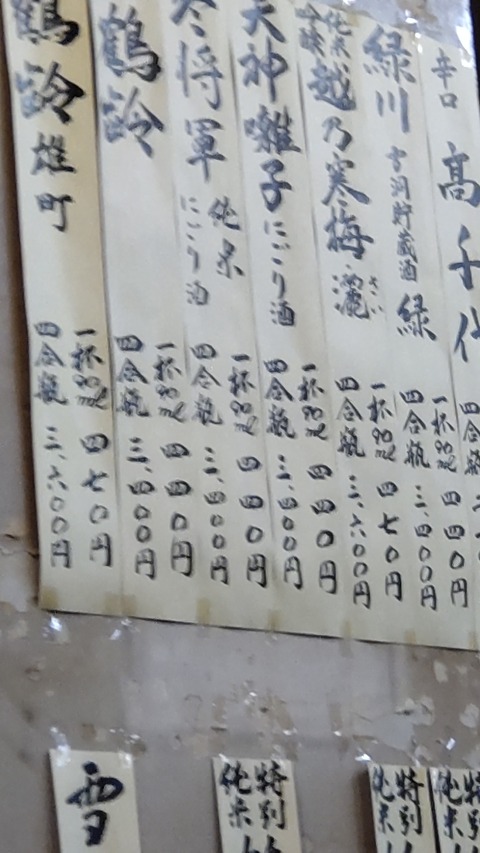 辛口 高千代
四合
緑川 雪洞貯蔵酒 緑
一杯90ml 四四〇円
四合瓶 三、四〇〇円
純米吟醸 越乃寒梅 灑 さい
一杯90ml 四七〇円
四合瓶 三、六〇〇円
天神囃子 にごり酒
一杯90ml 四四〇円
四合瓶 三、四〇〇円
冬将軍 純米 にごり酒
一杯90ml 四四〇円
四合瓶 三、四〇〇円
鶴齢
一杯90ml 四四〇円
四合瓶 三、四〇〇円
鶴齢 雄町
一杯90ml 四七〇円
四合瓶 三、六〇〇円
特別純米
特別純米
特別純米
雪